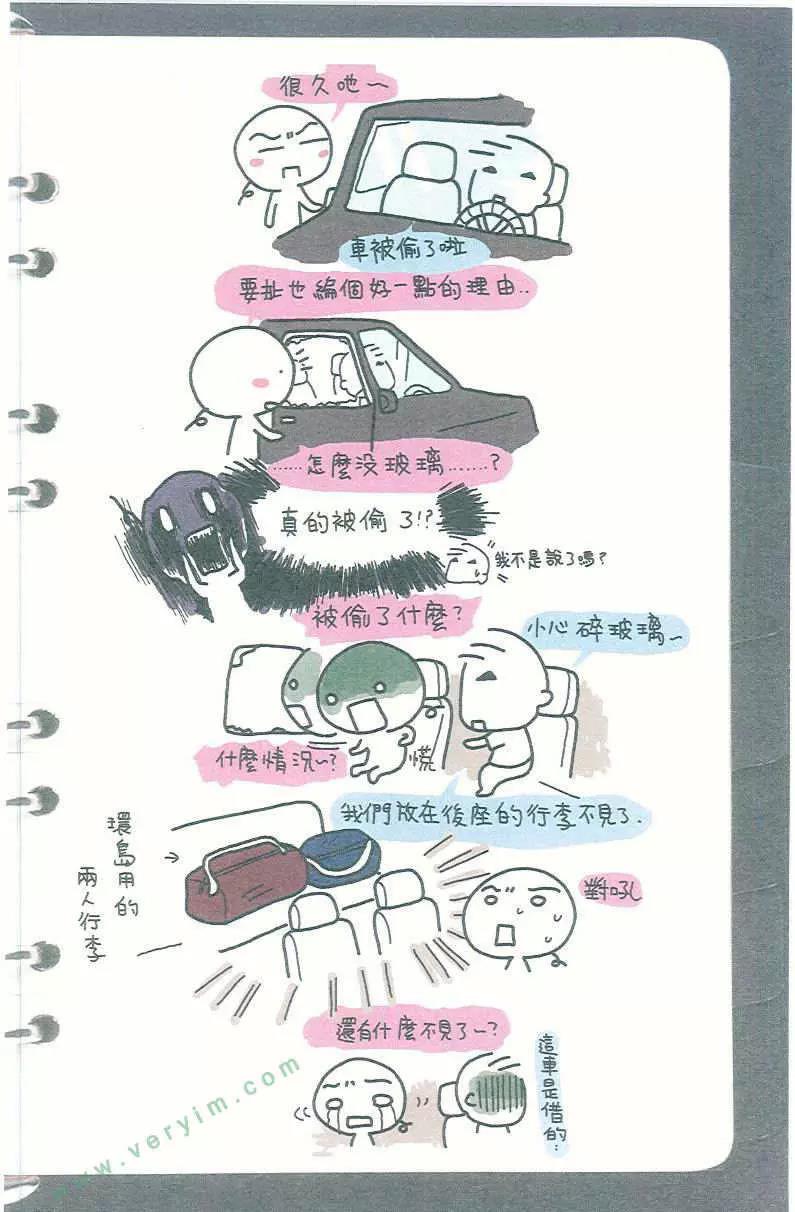 很久吔～
車被偷了啦
要扯也編個好一點的理由..
......怎麼沒玻璃.......?
真的被偷了!?
我不是說了嗎?
被偷了什麼?
小心碎玻璃～
什麼情況～?
慌
我們放在後座的行李不見了.
環島用的
兩人行李
對吼
還有什麼不見了～?
這車是借的..
www.veryim.com